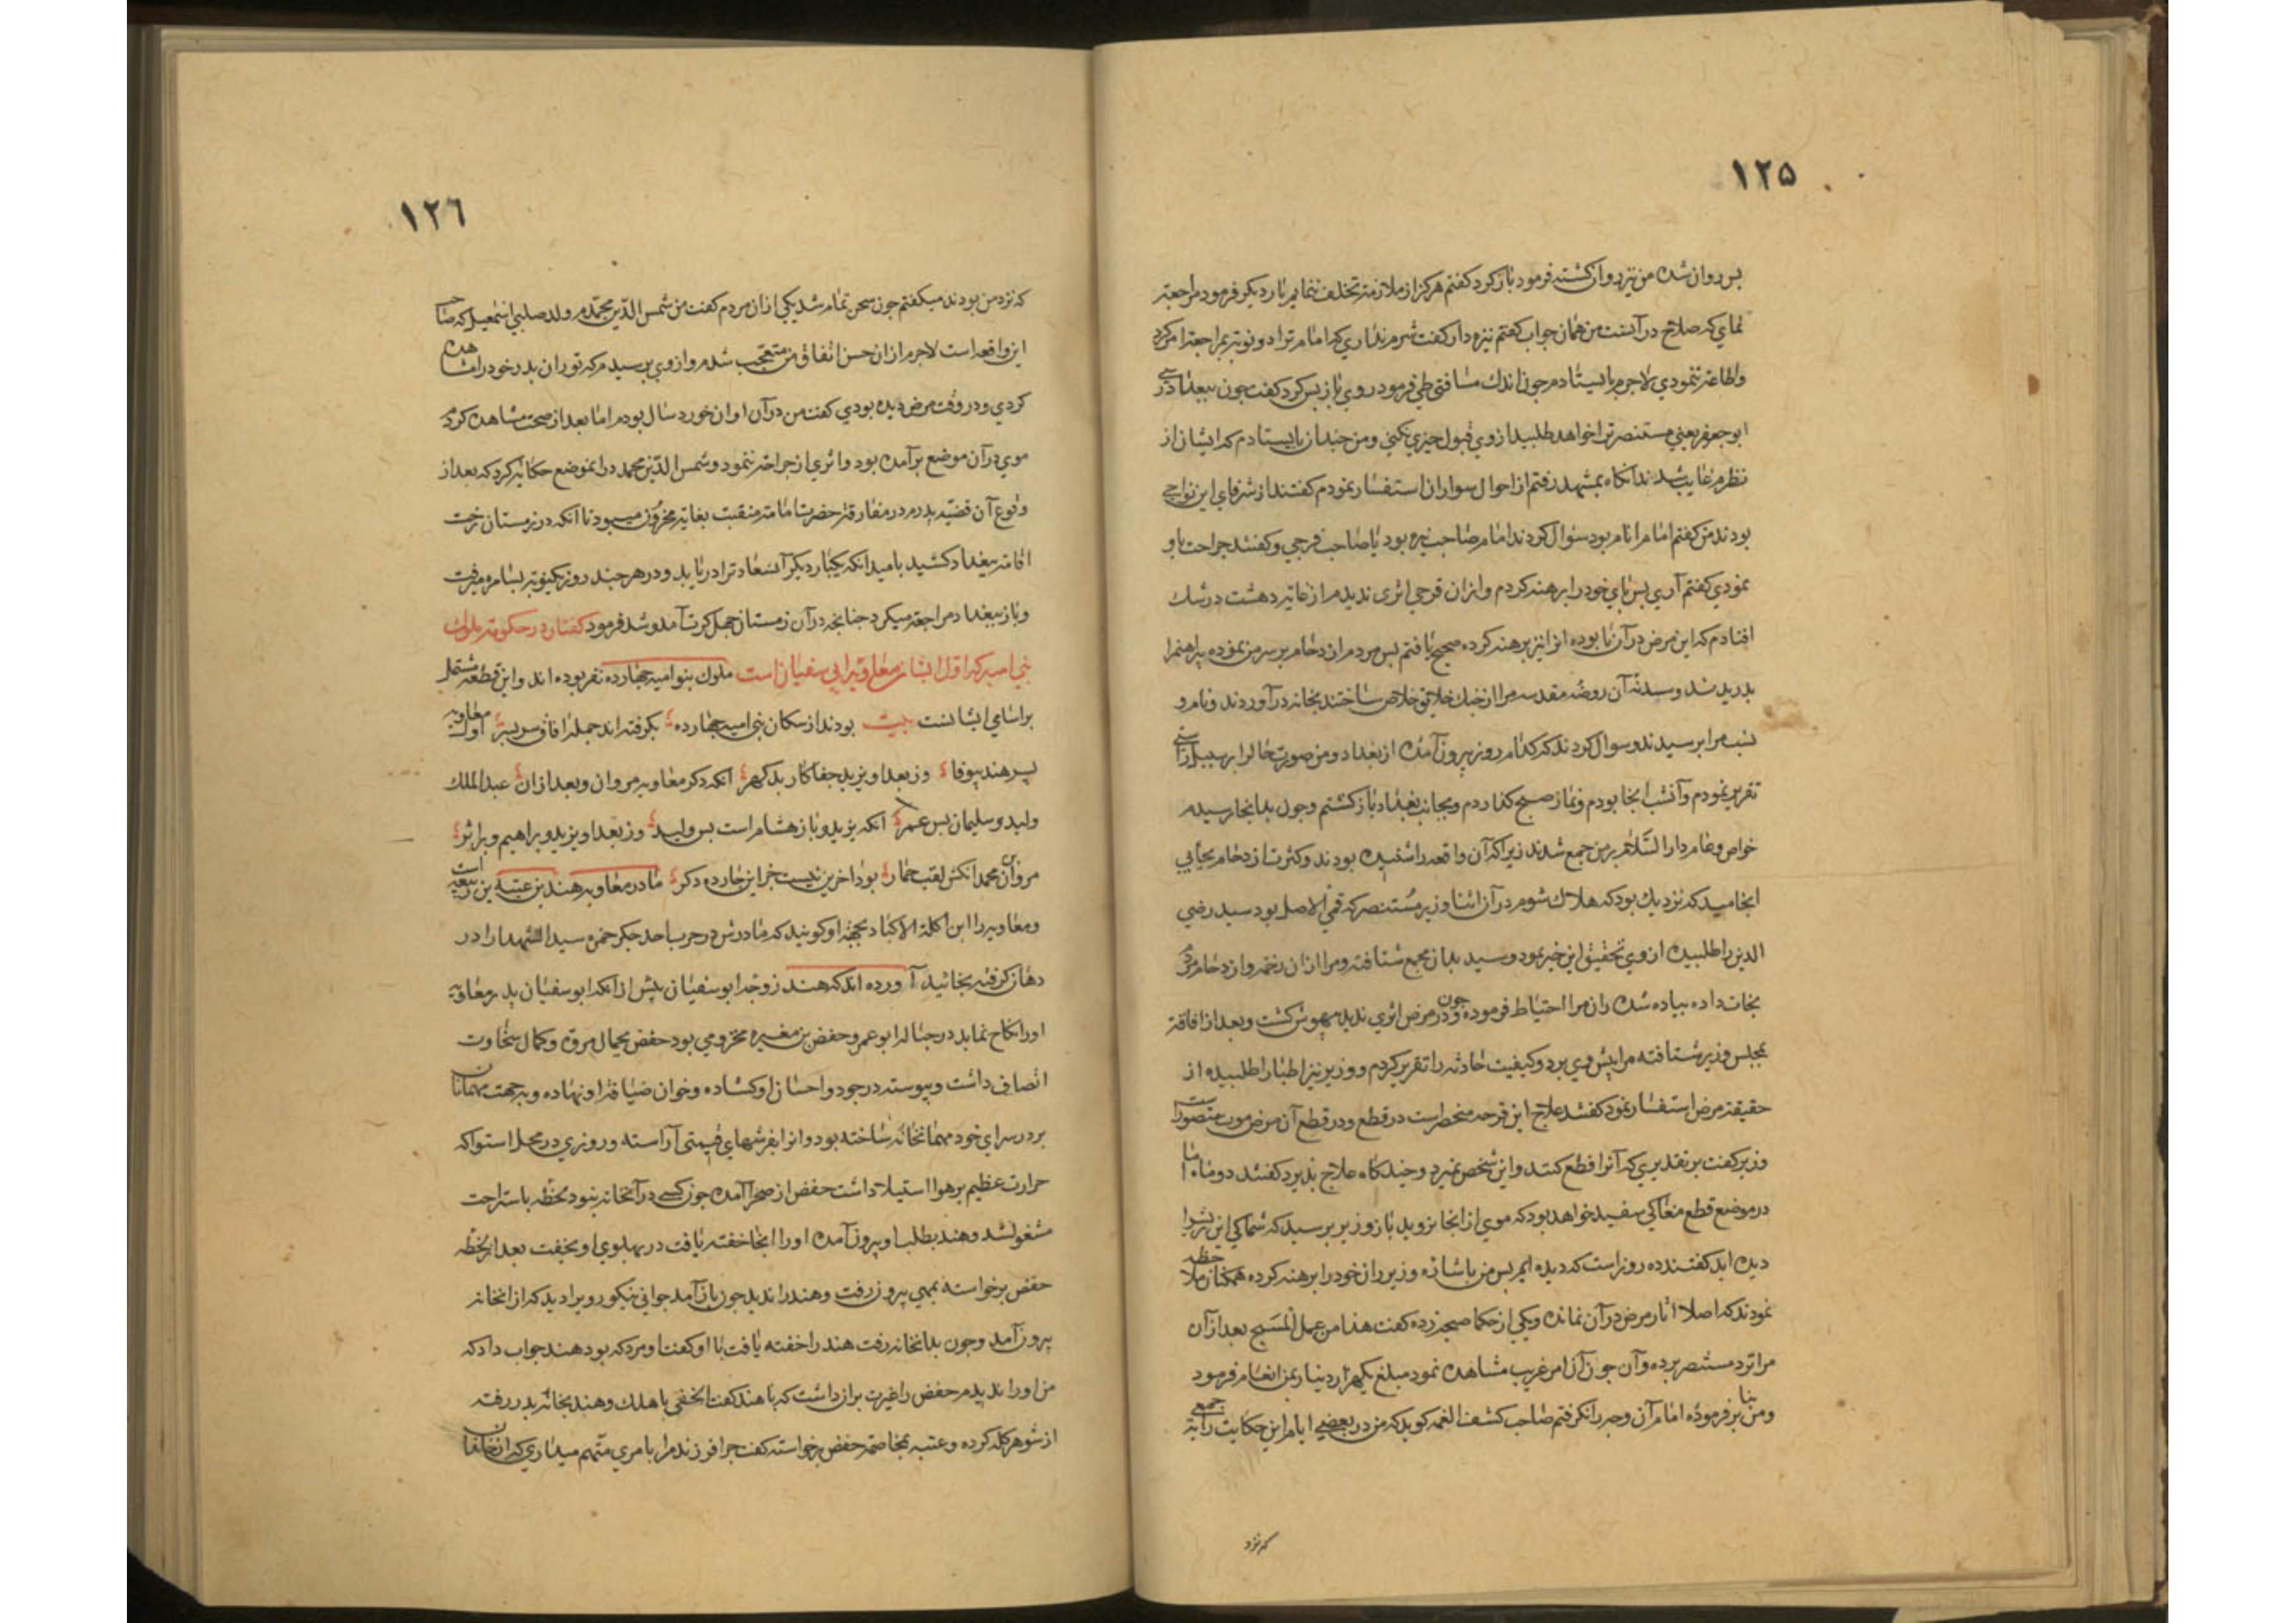 ۱۲۵
پس روان شده من نیز روان کشته فرمود باز کرد کفتم هرکز از ملازمة تخلف ننمایم بار دیکر فرمود مراجعة
نمای که صلاح در آنست من همان جواب کفتم نیزه دار کفت شرم نداری که امام ترا دو نوبة بمراجعة امر کرد
واطاعة ننمودی لاجرم بایستادم چون اندك مسافتی طی فرمود روی باز پس کرد کفت چون ببغداد رسی
ابو جعفر یعنی مستنصر ترا خواهد طلبید از وی قبول چیزی نکنی ومن چندان بایستادم که ایشان از
نظرم غایب شدند آنکاه بمشهد رفتم از احوال سواران استفسار نمودم کفتند از شرفای این نواحی
بودند من کفتم امام انام بود سؤال کردند امام صاحب نیزه بود یا صاحب فرجی وکفتند جراحت باو
نمودی کفتم آری پس پای خود را برهنه کردم وازان قرحی اثری ندیدم از غایة دهشت در شك
افتادم که این مرض در آن پا بوده انرا نیز برهنه کرده صحیح یافتم پس مردم ازدحام بر سر من نموده پیراهنم را
بدریدند وسدنه آن روضه مقدسه مرا از چنك خلایق خلاص ساختند بخانه در آوردند ونام و
نسب مرا پرسیدند وسوال کردند که کدام روز بیرون آمده از بغداد ومن صورت حال را بر سبیل راستی
تقریر نمودم وآنشب آنجا بودم ونماز صبح کذاردم وبجانب بغداد باز کشتم وچون بدانجا رسیدم
خواص وعام دار السلام بر من جمع شدند زیرا که آن واقعه را شنیده بودند وکثرت ازدحام بجایی
انجامید که نزدیك بود که هلاك شوم در آن اثنا وزیر مستنصر که قمی الاصل بود سید رضی
الدین را طلبیده از وی تحقیق این خبر نمود وسید بدان مجمع شتافته ومرا ازان زخمه وازدحام مردم
نجات داده پیاده شده ران مرا احتیاط فرموده وچون در مرض اثری ندید مهوش کشت وبعد از افاقة
بمجلس وزیر شتافته مرا پیش وی برد وکیفیت حادثه را تقریر کردم ووزیر نیز اطبا را طلبیده از
حقیقة مرض استفسار نمود کفتند علاج این قرحه منحصر است در قطع ودر قطع آن مرض موت متصور است
وزیر کفت بر تقدیری که آنرا قطع کنند واین شخص نمیرد وچند کاه علاج پذیرد کفتند دو ماه اما
در موضع قطع مغاکی سفید خواهد بود که موی از انجا نروید باز وزیر پرسید که شما کی این ریش را
دیده اید کفتند ده روز است که دیده ایم پس من باشارة وزیر ران خود را برهنه کرده همکنان ملاحظه
نمودند که اصلا آثار مرض در آن نمانده ویکی از حکما صیحه زده کفت هذا من عمل المسیح بعد از آن
مرا نزد مستنصر برده وآن چون آن امر غریب مشاهده نمود مبلغ یکهزار دینار بمن انعام فرمود
ومن بنا بر فرموده امام آن وجه را نکرفتم صاحب کشف الغمه کوید که من در بعضی ایام این حکایت را بة جمعی
که نزد
۱۲٦
که نزد من بودند میکفتم چون سخن تمام شد یکی از ان مردم کفت من شمس الدین محمدم ولد صلبی اسمعیل که صاحب
این واقعه است لاجرم ازان حسن اتفاق من متعجب شدم واز وی پرسیدم که تو ران پدر خود را مشاهده
کردی ودر وقت مرض دیده بودی کفت من در آن اوان خورد سال بودم اما بعد از صحت مشاهده کردم
موی در آن موضع بر آمده بود واثری از جراحة ننمود وشمس الدین محمد در انموضع حکایة کرد که بعد از
وقوع آن قضیه پدرم در مفارقة حضرت امامة منقبت بغایة محزون میبود تا آنکه در زمستان رخت
اقامة ببغداد کشید بامید آنکه یکبار دیکر آنسعادة را دریابد ودر هر چند روز یکنوبة بسامره میرفت
وباز ببغداد مراجعة میکرد چنانچه در آن زمستان چهل کرت آمد وشد فرمود کفتار در حکومة ملوك
بنی امیه که اول ایشان معاویة ابی سفیان است ملوك بنو امیه چهارده نفر بوده اند واین قطعه مشتمل
بر اسامی ایشانست بیت بودند از سکان بنی امیه چهارده بکرفته اند جمله افاق سربسر اول معاویه
پسر هند بیوفا وز بعد او یزید جفاکار بدکهر آنکه دکر معاویه مروان وبعد ازان عبد الملك
ولید وسلیمان پس عمر آنکه یزید وباز هشام است پس ولید وز بعد او یزید وبراهیم وبر اثر
مروان بن محمد آنکش لقب حمار بود آخرین نیست جز این چارده دکر مادر معاویه هند بن عتبه بن ربیعه است
ومعاویه را ابن اکلة الاکباد بجهة او کویند که مادرش در حرب احد جکر حمزه سید الشهدا را در
دهان کرفته بخائید آورده اند که هند زوجه ابو سفیان پیش از آنکه ابو سفیان پدر معاویه
اورا نکاح نماید در حباله ابو عمرو حفص بن مغیره مخزومی بود حفص بجمال مروة وکمال سخاوت
اتصاف داشت وپیوسته در جود واحسان او کشاده وخوان ضیافة او نهاده وبجهت مهمانان
بر در سرای خود مهمانخانه ساخته بود وانرا بفرشهای قیمتی آراسته وروزی در محل استوا که
حرارت عظیم بر هوا استیلا داشت حفص از صحرا آمده چون کسی در آنخانه نبود لحظه باستراحت
مشغول شد وهند بطلب او بیرون آمده اورا انجا خفته یافت در پهلوی او بخفت بعد از لحظه
حفص برخواسته بمهمی بیرون رفت وهند را ندید چون باز آمد جوانی نیکو رو یرا دید که از انخانه
بیرون آمد وچون بدانخانه رفت هند را خفته یافت با او کفت او مرد که بود هند جواب داد که
من اورا ندیدم حفص را غیرت بران داشت که با هند کفت الحقی باهلك وهند بخانه پدر رفته
از شوهر کله کرده وعتبه بمخاصمه حفص برخواسته کفت چرا فرزند مرا بامری متهم میداری که از انخانفان